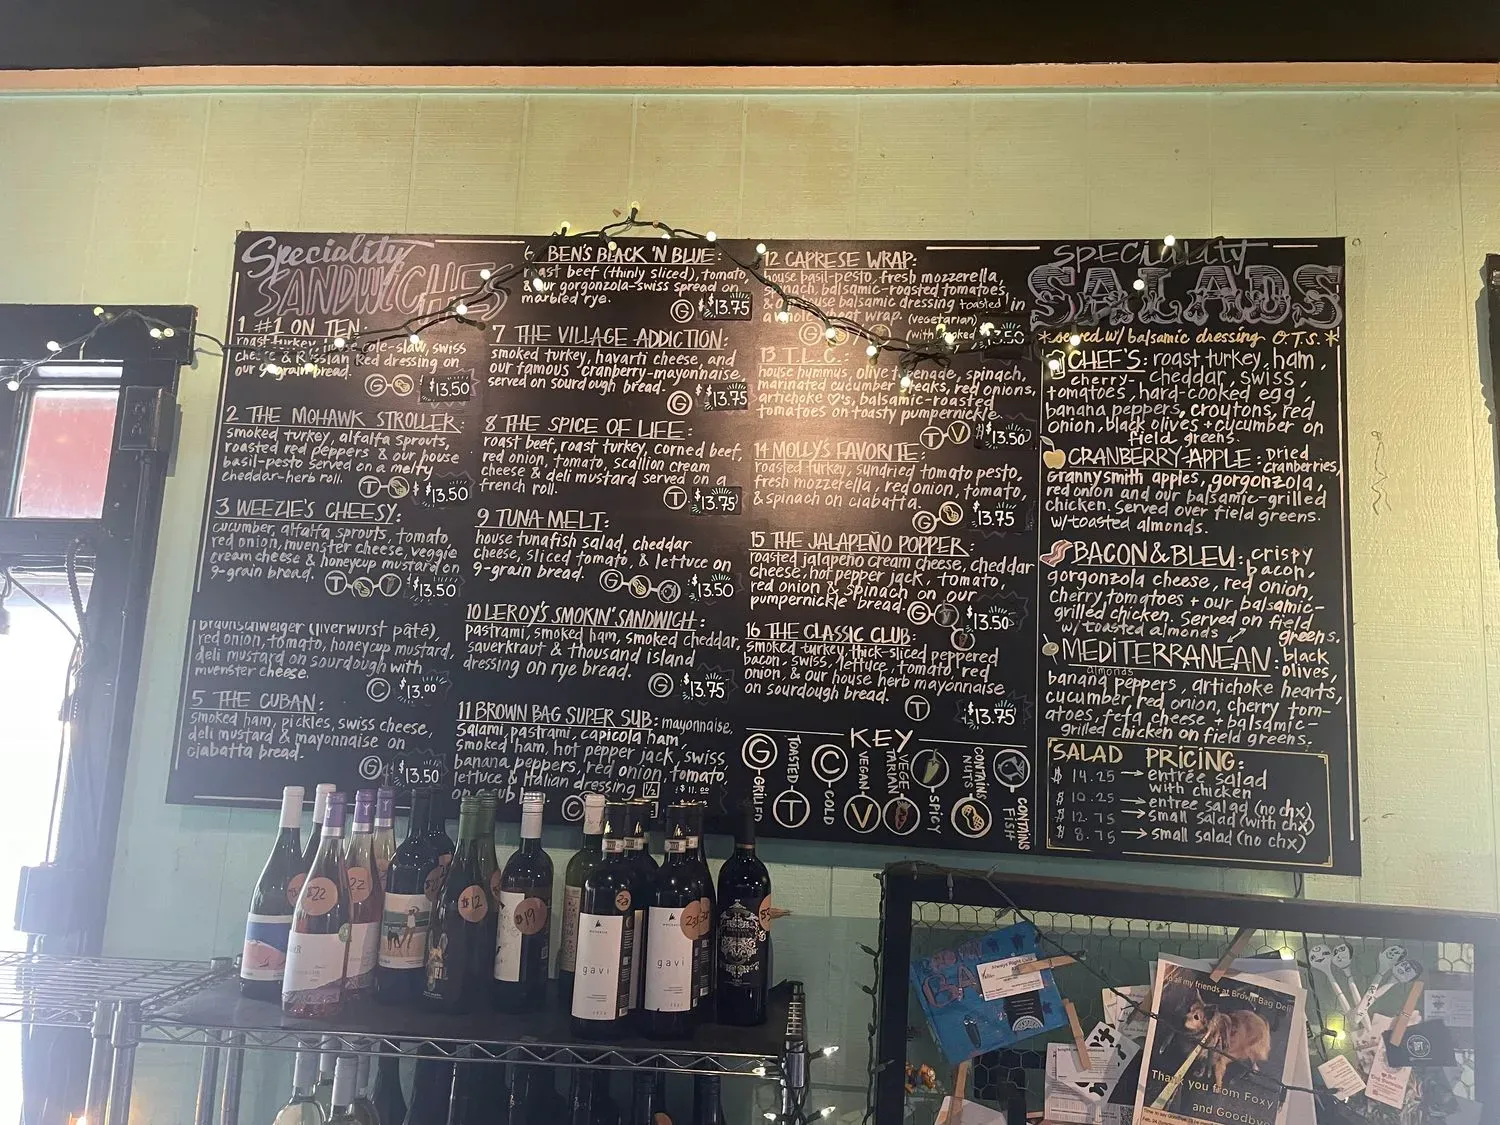 Speciality
SANDWICHES
1 #1 ON TEN:
roast turkey, house cole-slaw, swiss
cheese & Russian Red dressing on
our 9-grain bread.
G $13.50
2 THE MOHAWK STROLLER:
smoked turkey, alfalfa sprouts,
roasted red peppers & our house
basil-pesto served on a melty
cheddar-herb roll.
T $13.50
3 WEEZIE'S CHEESY:
cucumber, alfalfa sprouts, tomato,
red onion, muenster cheese, veggie
cream cheese & honeycup mustard on
9-grain bread.
T $13.50
braunschweiger (liverwurst pâté),
red onion, tomato, honeycup mustard,
deli mustard on sourdough with
muenster cheese.
C $13.00
5 THE CUBAN:
smoked ham, pickles, swiss cheese,
deli mustard & mayonnaise on
ciabatta bread.
G $13.50
BEN'S BLACK 'N BLUE:
roast beef (thinly sliced), tomato,
& our gorgonzola-swiss spread on
marbled rye.
G $13.75
7 THE VILLAGE ADDICTION:
smoked turkey, havarti cheese, and
our famous cranberry-mayonnaise,
served on sourdough bread.
G $13.75
8 THE SPICE OF LIFE:
roast beef, roast turkey, corned beef,
red onion, tomato, scallion cream
cheese & deli mustard served on a
french roll.
T $13.75
9 TUNA MELT:
house tunafish salad, cheddar
cheese, sliced tomato, & lettuce on
9-grain bread.
G $13.50
10 LEROY'S SMOKIN' SANDWICH:
pastrami, smoked ham, smoked cheddar,
sauerkraut & thousand island
dressing on rye bread.
G $13.75
11 BROWN BAG SUPER SUB: mayonnaise,
salami, pastrami, capicola ham,
smoked ham, hot pepper jack, swiss,
banana peppers, red onion, tomato,
lettuce & italian dressing 1/2
on sub
C
12 CAPRESE WRAP:
house basil-pesto, fresh mozzerella,
spinach, balsmic-roasted tomatoes,
& our house balsamic dressing toasted in
a whole wheat wrap. (vegetarian)
(with smoked 13.50
13 T.L.C.:
house hummus, olive tapenade, spinach,
marinated cucumber steaks, red onions,
artichoke ♡'s, balsamic-roasted
tomatoes on toasty pumpernickle.
T V $13.50
14 MOLLY'S FAVORITE:
roasted turkey, sundried tomato pesto,
fresh mozzerella, red onion, tomato,
& spinach on ciabatta.
G $13.75
15 THE JALAPEÑO POPPER:
roasted jalapeño cream cheese, cheddar
cheese, hot pepper jack, tomato,
red onion & spinach on our
pumpernickle bread. G $13.50
16 THE CLASSIC CLUB:
smoked turkey, thick-sliced peppered
bacon, swiss, lettuce, tomato, red
onion, & our house herb mayonnaise
on sourdough bread.
T $13.75
KEY
G GRILLED
TOASTED T
C COLD
VEGAN V
VEGETARIAN
SPICY
CONTAINS NUTS
CONTAINS FISH
SPECIALITY
SALADS
*served w/ balsamic dressing O.T.S.*
CHEF'S: roast turkey, ham,
cherry- cheddar, swiss,
tomatoes, hard-cooked egg,
banana peppers, croutons, red
onion, black olives + cucumber on
field greens.
CRANBERRY-APPLE: Dried
cranberries,
Granny smith apples, gorgonzola,
red onion and our balsamic-grilled
chicken. Served over field greens.
w/toasted almonds.
BACON & BLEU: crispy
bacon,
gorgonzola cheese, red onion,
cherry tomatoes + our balsamic-
grilled chicken. Served on field
w/ toasted almonds greens.
MEDITERRANEAN: black
olives,
almonds
banana peppers, artichoke hearts,
cucumber, red onion, cherry tom-
atoes, feta cheese + balsamic-
grilled chicken on field greens.
SALAD PRICING:
$ 14.25 → entrée salad
with chicken
$ 10.25 → entree salad (no chx)
$ 12.75 → small salad (with chx)
$ 8.75 → small salad (no chx)
$22
22
$12
$19
gavi
gavi
Always Right Cuts
all my friends at Brown Bag Deli
Thank you from Foxy
and Goodbye